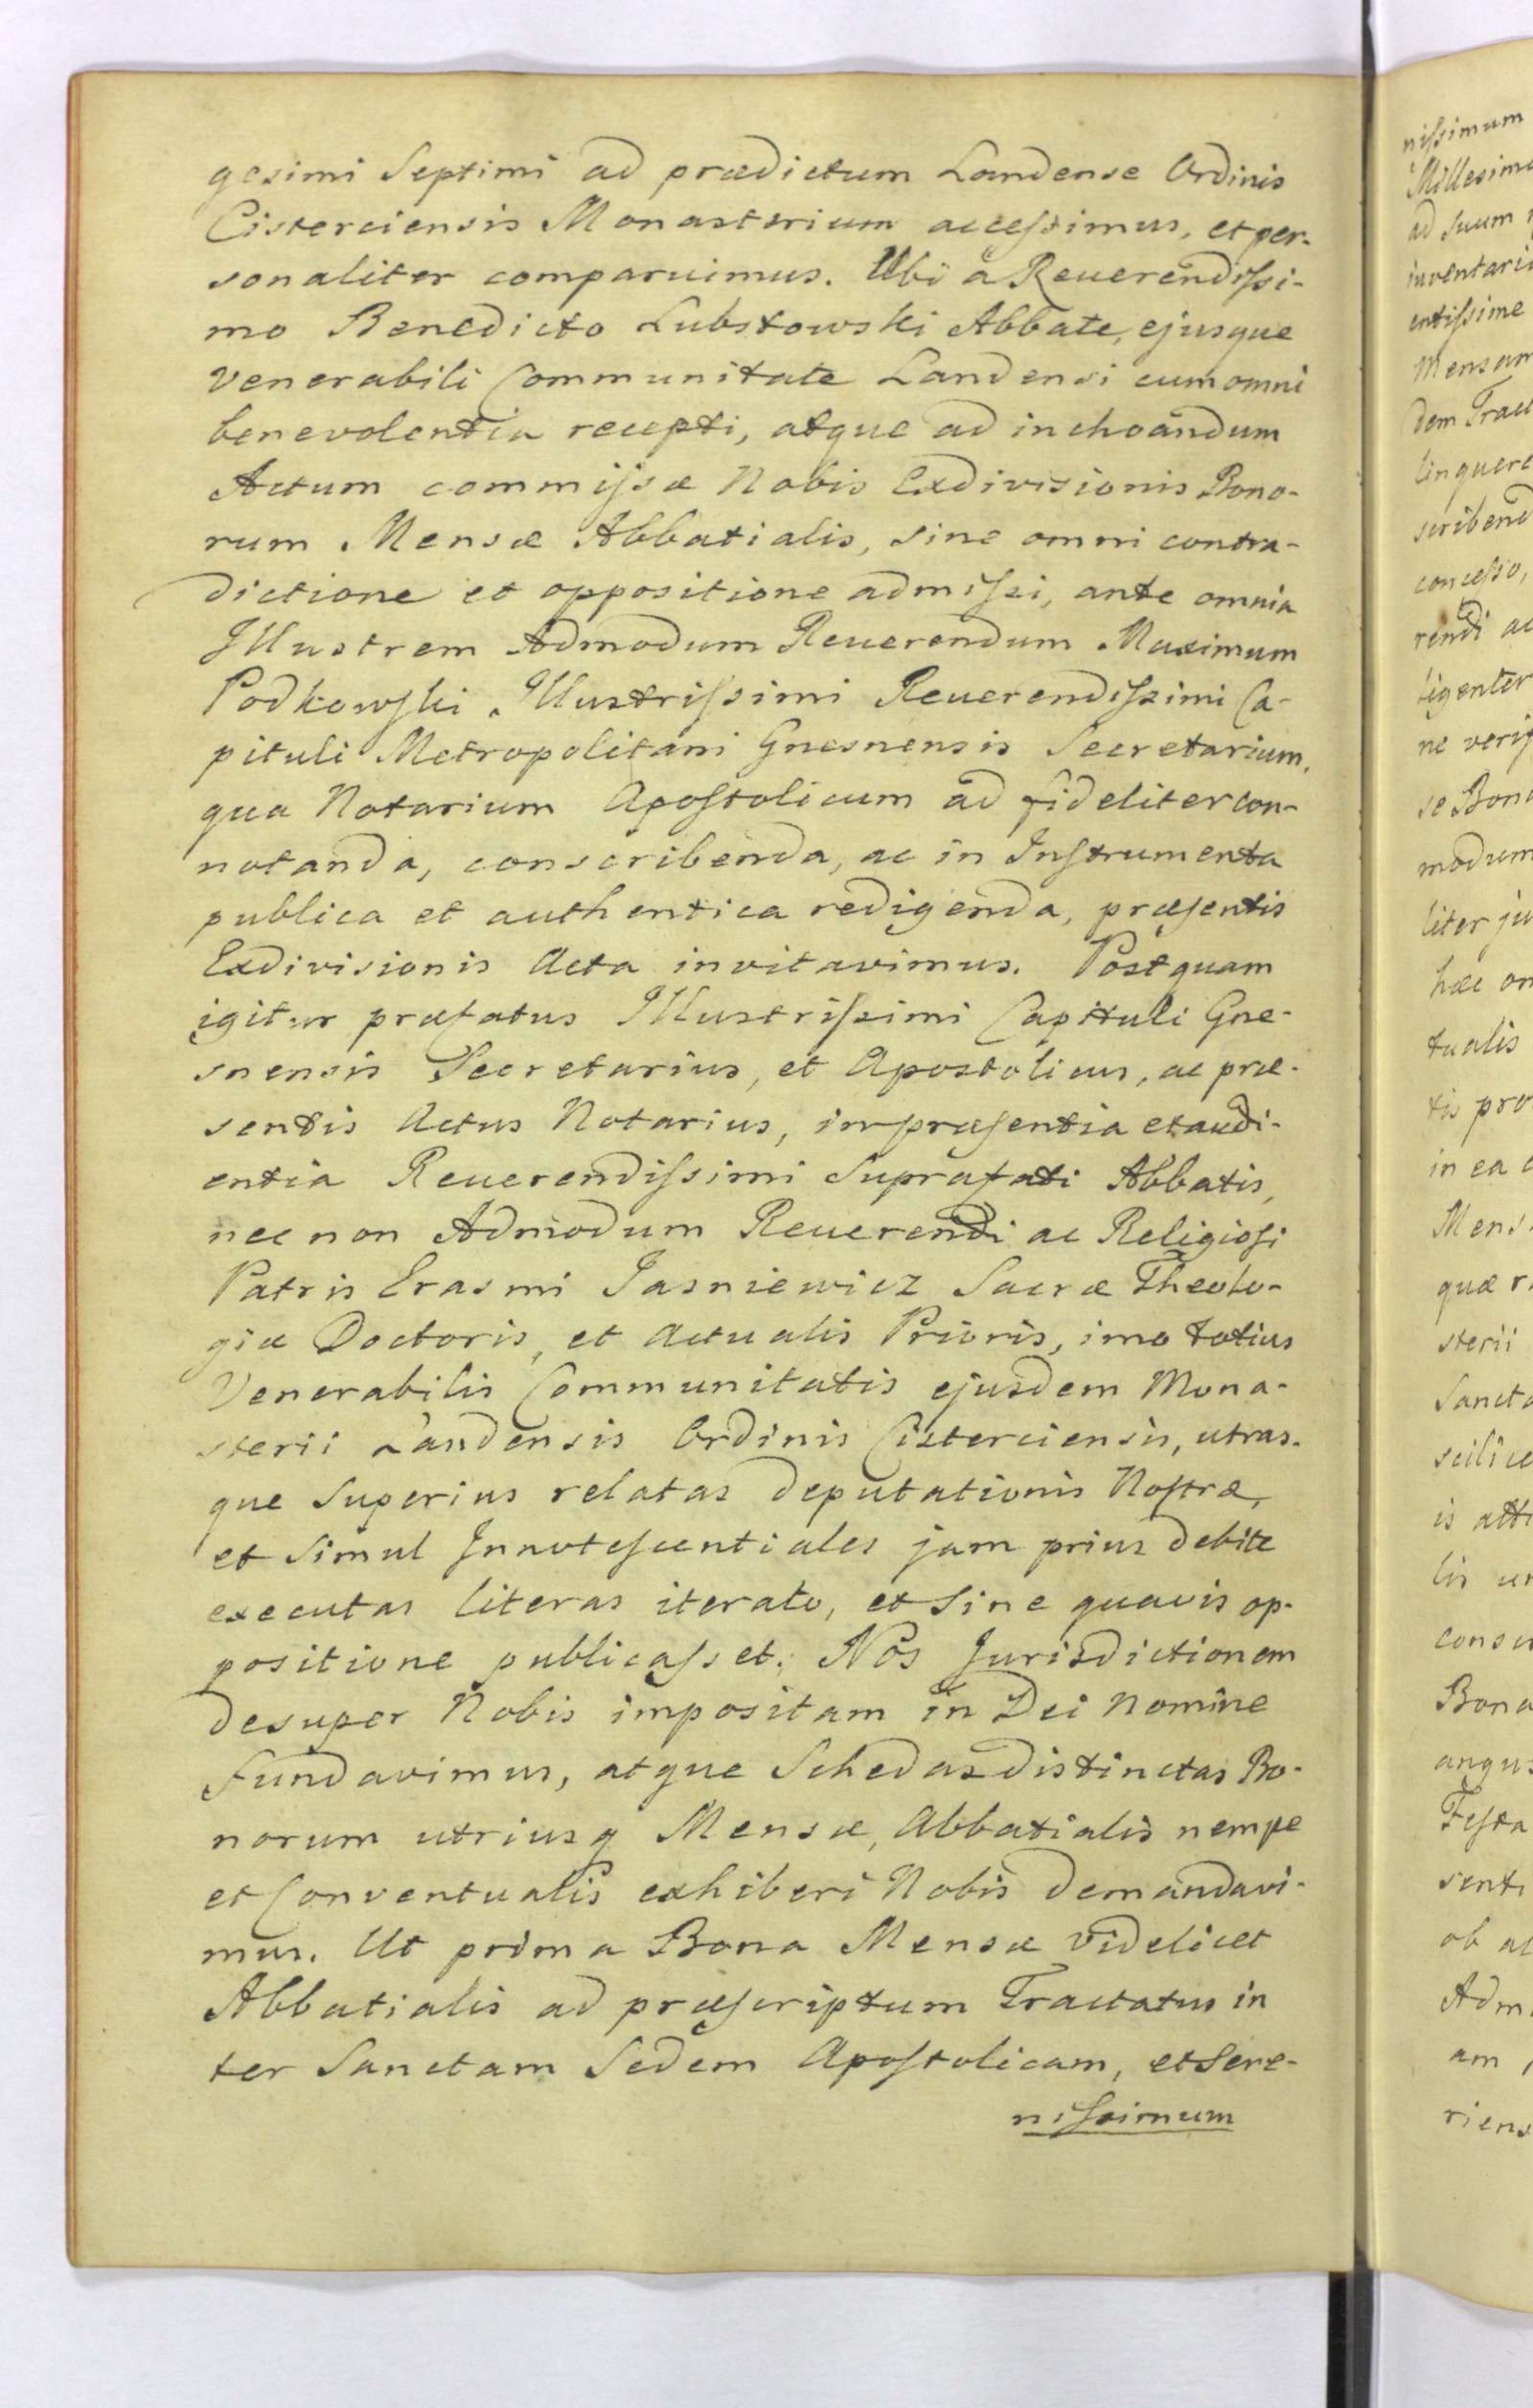 gesimi Septimi ad prædictum Landense Ordinis
Cisterciensis Monasterium accessimus, et per-
sonaliter comparuimus. Ubi a Reuerendissi-
mo Benedicto Lubstowski Abbate, ejusque
Venerabili Communitate Landensi cum omni
benevolentia recepti, atque ad inchoandum
Actum commissæ Nobis Exdivisionis Bono-
rum Mensæ Abbatialis, sine omni contra-
dictione et oppositione admissi, ante omnia
Illustrem Admodum Reuerendum Maximum
Podkowski Illustrissimi Reuerendissimi Ca-
pituli Metropolitani Gnesnensis Secretarium,
qua Notarium Apostolicum ad fideliter con-
notanda, conscribenda, ac in Instrumenta
publica et authentica redigenda, præsentis
Exdivisionis Acta invitavimus. Postquam
igitur præfatus Illustrissimi Capituli Gne-
snensis Secretarius, et Apostolicus, ac præ-
sentis Actus Notarius, in præsentia et audi-
entia Reuerendissimi Suprafati Abbatis,
nec non Admodum Reuerendi ac Religiosi
Patris Erasmi Jasniewicz Sacræ Theolo-
giæ Doctoris, et Actualis Prioris, imo totius
Venerabilis Communitatis ejusdem Mona-
sterii Landensis Ordinis Cisterciensis, utras-
que Superius relatas Deputationis Nostræ,
et Simul Innotescentiales jam prius debite
executas literas iterato, et Sine quavis op-
positione publicasset; Nos Jurisdictionem
desuper Nobis impositam in Dei Nomine
Fundavimus, atque Schedas distinctas Bo-
norum utriusq Mensæ, Abbatialis nempe
et Conventualis exhiberi Nobis demandavi-
mus. Ut prima Bona Mensæ videlicet
Abbatialis ad præscriptum Tractatus in
ter Sanctam Sedem Apostolicam, et Sere-
nissimum
nissimum
Millesimo
ad suum
inventari
entissime
Mensam
dem Trac
linquere
scribend
concesso,
rendi ac
ligenter
ne veri
se Bono
modum
liter ju
hæc on
tualis
tis pro
in ea
Mens
quæ r
sterii
Sancta
scilice
is atti
lis un
consu
Bona
angus
Festa
senti
ob ac
Adm
am
riens